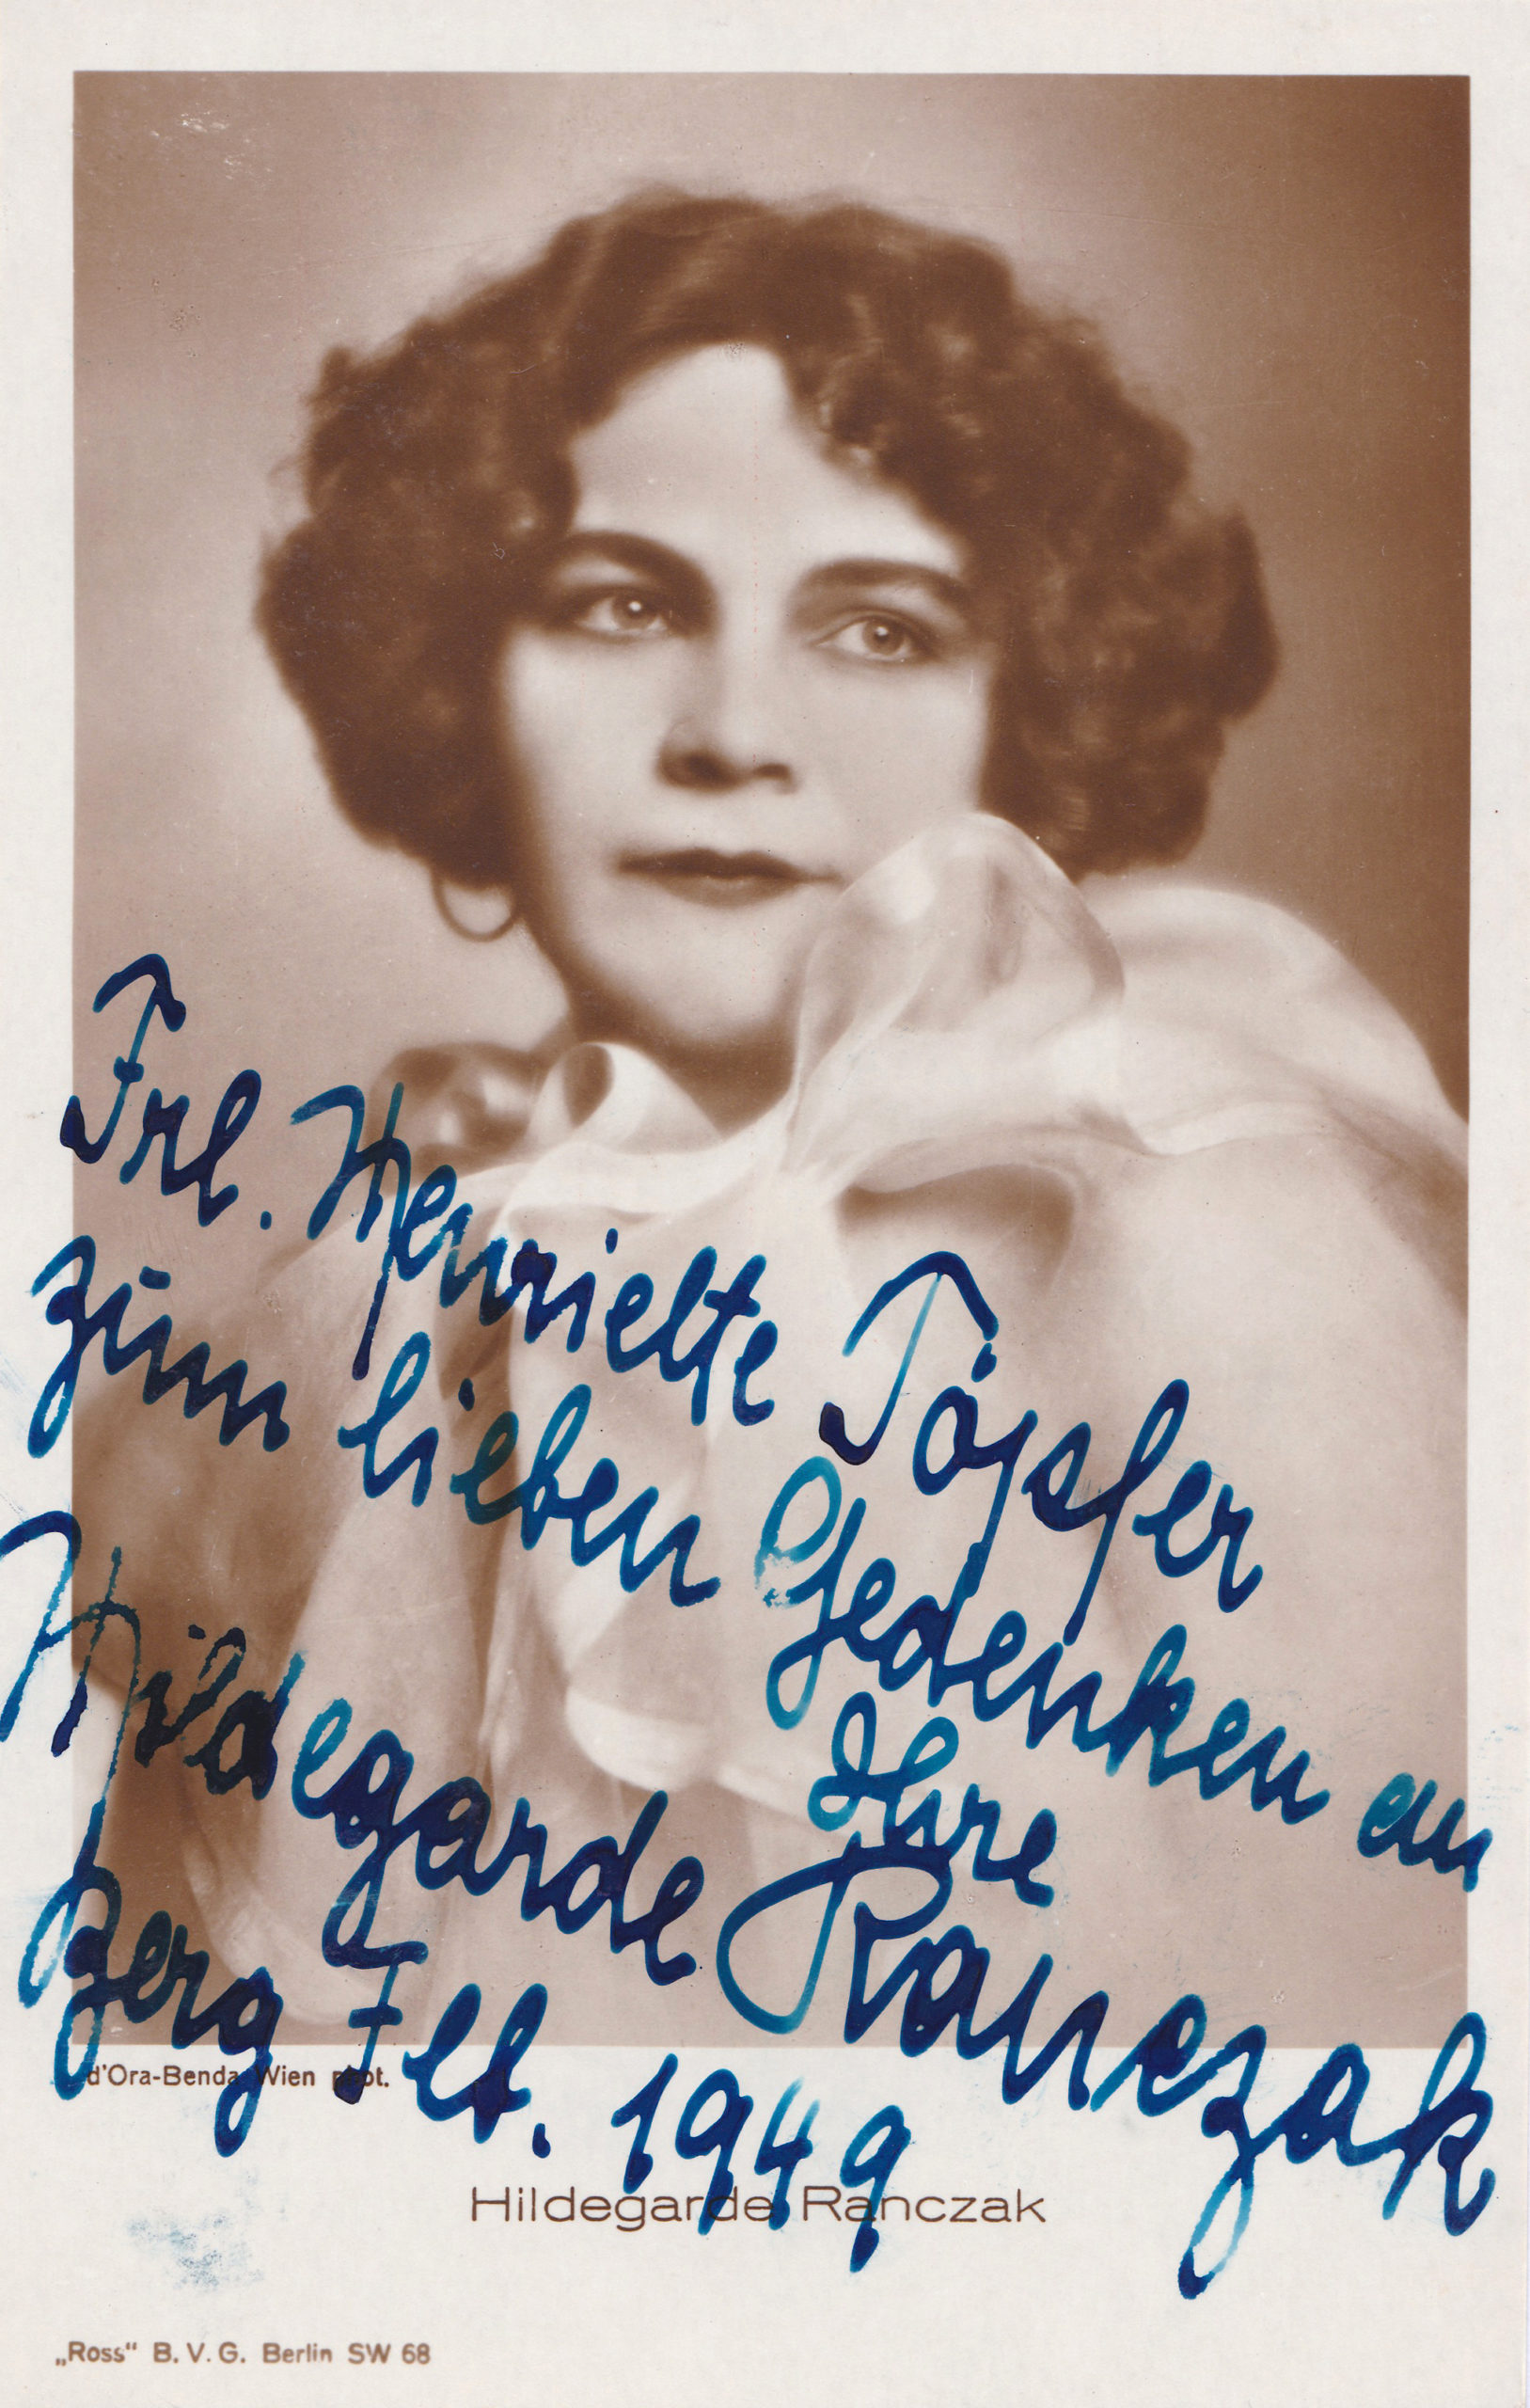 Frl. Henriette Töpfer
zum lieben Gedenken an
Ihre
Hildegarde Ranczak
Berg Feb. 1949
d'Ora-Benda Wien phot.
Hildegarde Ranczak
„Ross“ B. V. G. Berlin SW 68